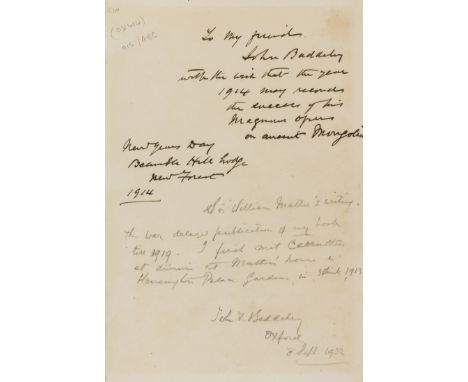 To my friend
John Baddeley
with the wish that the year
1914 may record
the success of his
Magnum Opus
on ancient Mongolia
New Years Day
Bramble Hill Lodge
New Forest
1914
Sir William Mather's writing.
The war delayed publication of my book
till 1919. I first met Carruthers
at dinner at Mather's house in
Kensington Palace Gardens, in 1913
John F. Baddeley
Oxford
Sept. 1932